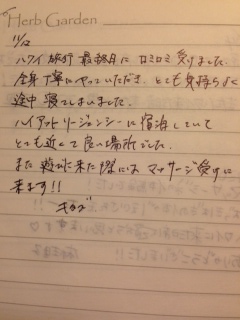 Herb Garden
11/12
ハワイ旅行 最終日に ロミロミ 受けました.
全身丁寧にやっていただき、とても気持ちよく
途中寝てしまいました.
ハイアットリージェンシーに宿泊していて
とても近くて良い場所でした.
また 遊びに来た際には マッサージ受けに
来ます!!